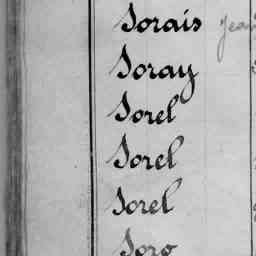 Sorais Jean
Soray
Sorel
Sorel
Sorel
Soro